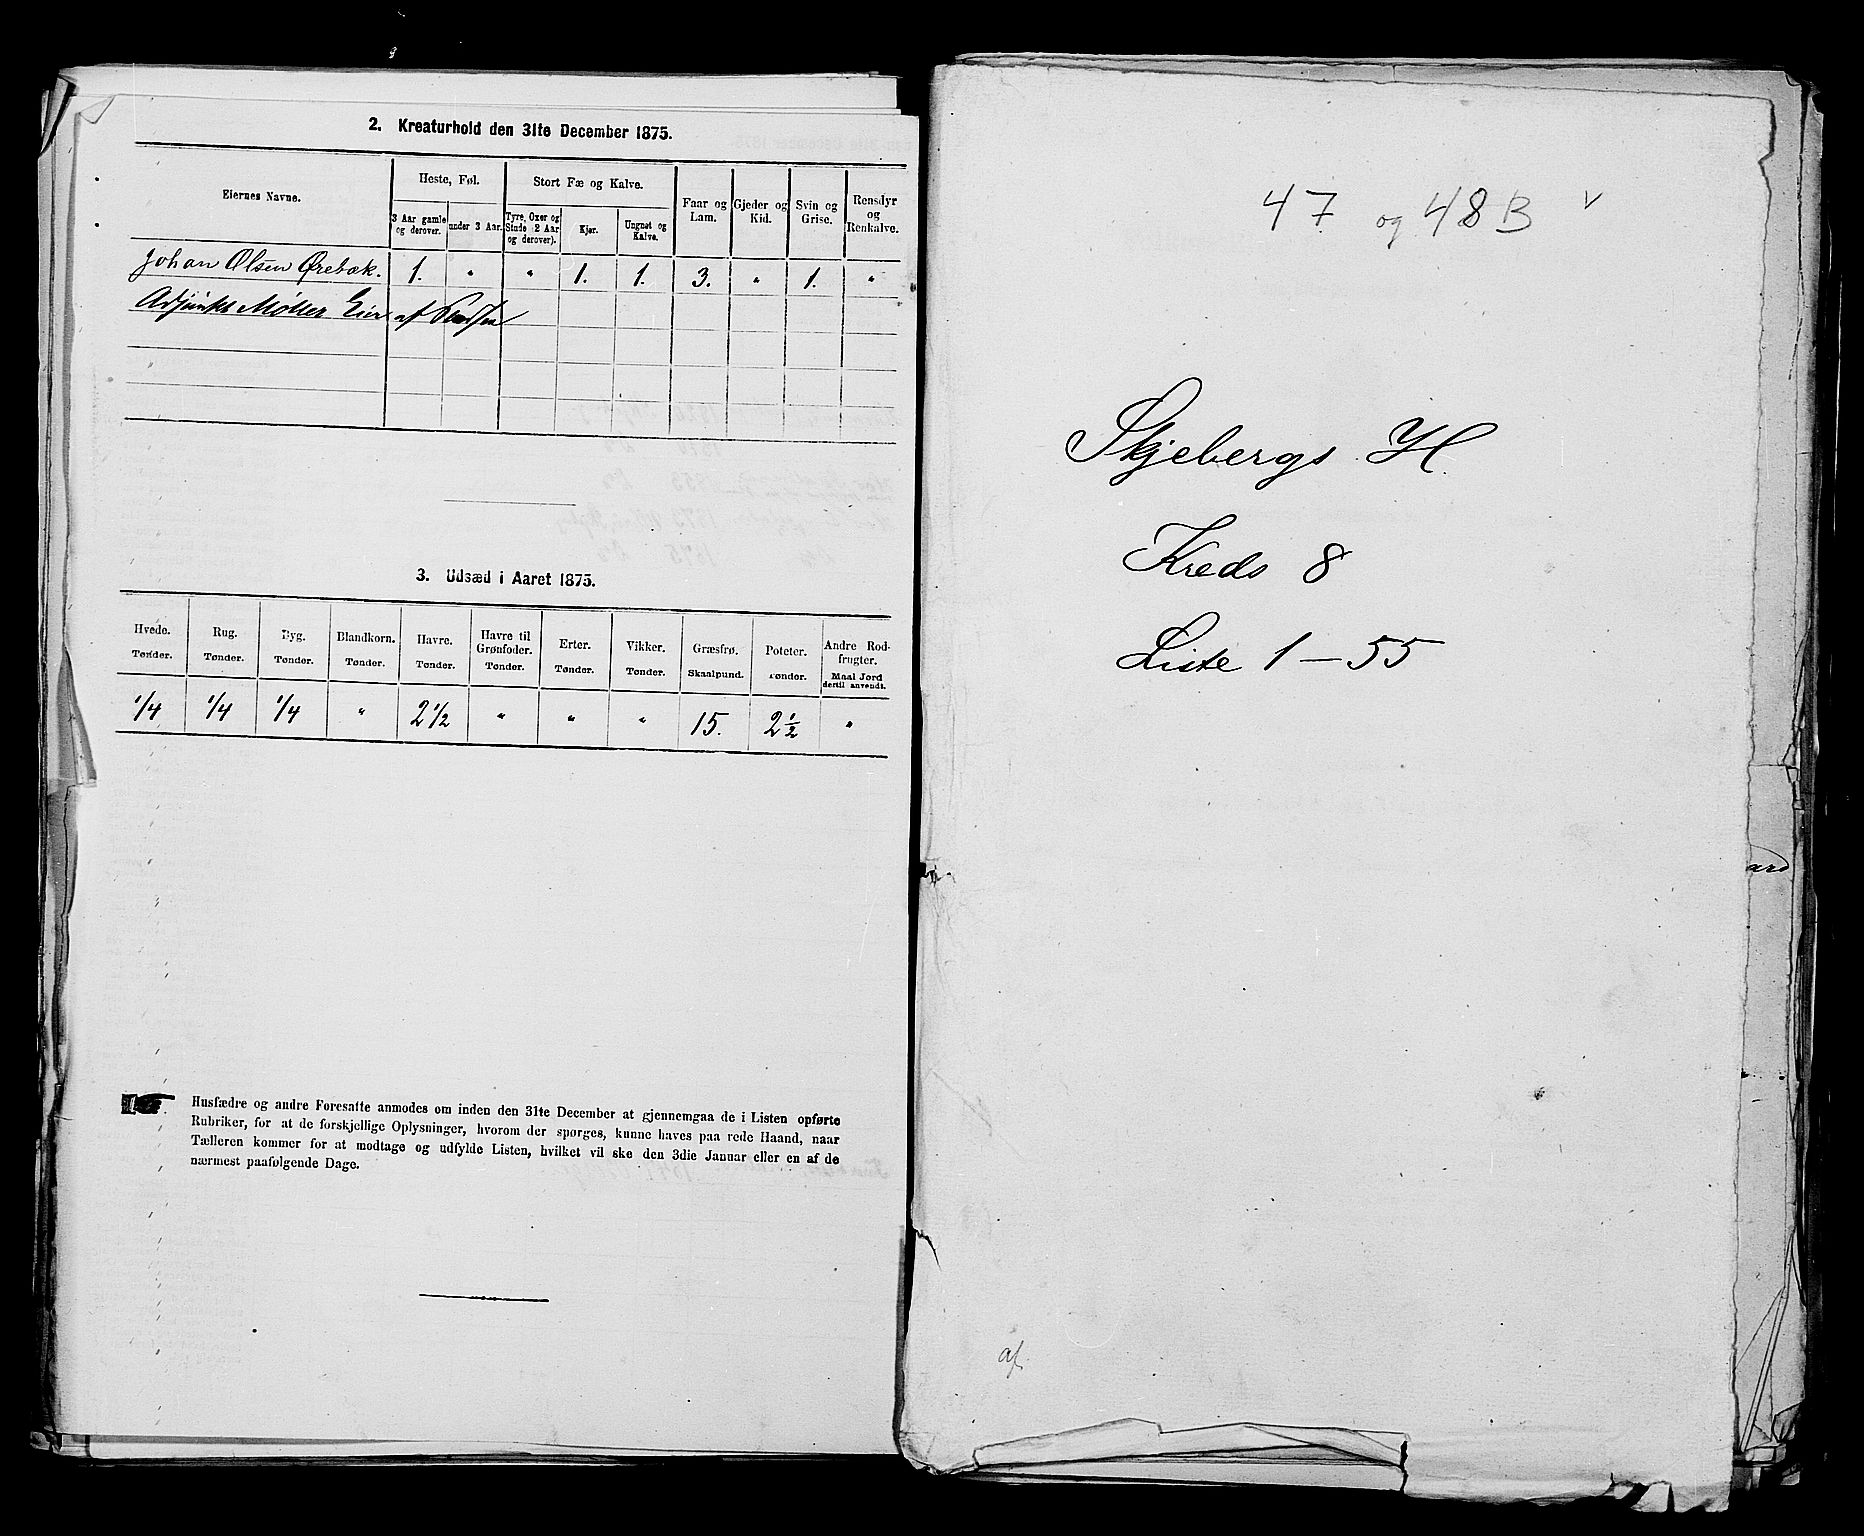 2. Kreaturhold den 31te December 1875.
Eiernes Navne.
Heste, Føl.
3 Aar gamle og derover.
under 3 Aar.
Stort Fæ og Kalve.
Tyre, Oxer og Stude 2 Aar og derover).
Kjør.
Ungnøt og Kalve.
Faar og Lam.
Gjeder og Kid.
Svin og Grise.
Rensdyr og Renkalve.
Johan Olsen Ørebæk. 1. " " 1. 1. 3. " 1. "
Adjunkt Møller Eier af
3. Udsæd i Aaret 1875.
Hvede. Tønder.
Rug. Tønder.
Byg. Tønder.
Blandkorn. Tønder.
Havre. Tønder.
Havre til Grønfoder. Tønder.
Erter. Tønder.
Vikker. Tønder.
Græsfrø. Skaalpund.
Poteter. Tønder.
Andre Rodfrugter. Maal Jord dertil anvendt.
1/4 1/4 1/4 " 2 1/2 " " " 15. 2 1/2 "
Husfædre og andre Foresatte anmodes om inden den 31te December at gjennemgaa de i Listen opførte
Rubriker, for at de forskjellige Oplysninger, hvorom der spørges, kunne haves paa rede Haand, naar
Tælleren kommer for at modtage og udfylde Listen, hvilket vil ske den 3die Januar eller en af de
nærmest paafølgende Dage.
47 og 48B v
Skjebergs H.
Kreds 8
Liste 1 – 55
ard
af